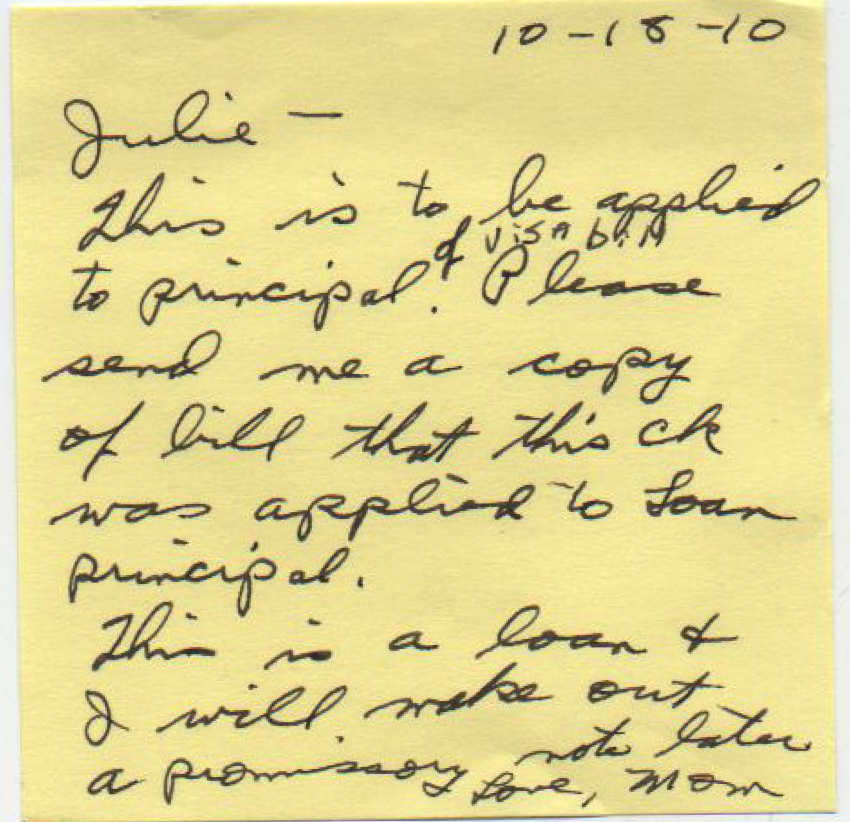 10-18-10
Julie —
This is to be applied
to principal. of VISA bill Please
send me a copy
of bill that this ck
was applied to Loan
principal.
This is a loan &
I will make out
a promissory note later
Love, Mom